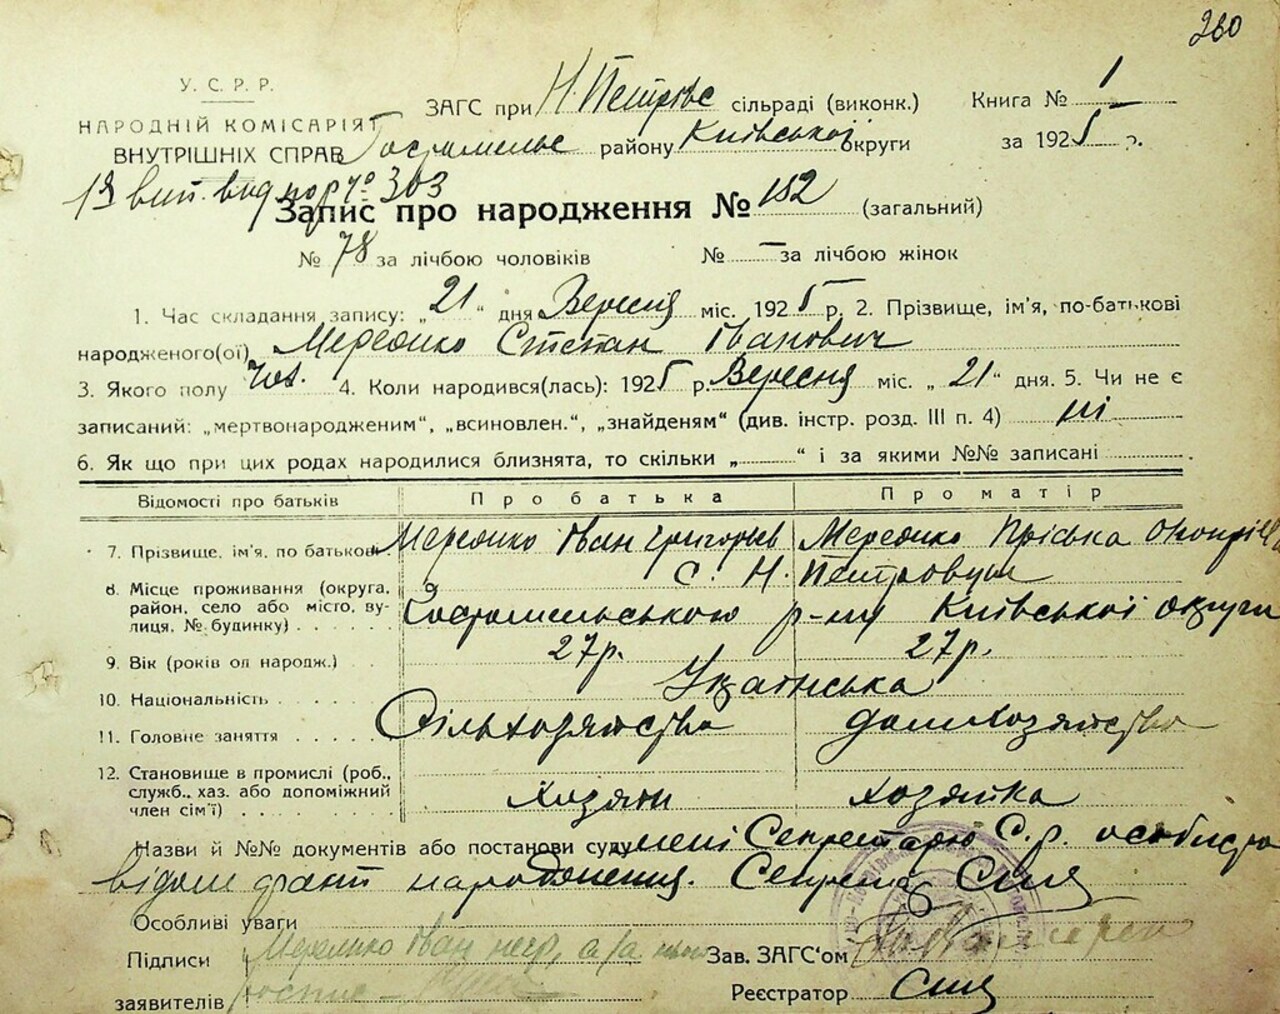 260
У. С. Р. Р.
НАРОДНІЙ КОМІСАРІЯТ
ВНУТРІШНІХ СПРАВ
ЗАГС при Н. Петрівс сільраді (виконк.) Книга № 1
Гостомельс району Київської округи за 1925 р.
вип. вид по № 303
Запис про народження № 152 (загальний)
№ 78 за лічбою чоловіків № — за лічбою жінок
1. Час складання запису: „21" дня Вересня міс. 1925 р. 2. Прізвище, ім'я, по-батькові
народженого(ої) Степан Іванович
3. Якого полу чол. 4. Коли народився(лась): 1925 р. Вересня міс. „21" дня. 5. Чи не є
записаний: „мертвонародженим", „всиновлен.", „знайденям" (див. інстр. розд. III п. 4) ні
6. Як що при цих родах народилися близнята, то скільки „ " і за якими №№ записані
Відомості про батьків Про батька Про матір
7. Прізвище, ім'я, по батькові Іван Григорьев Пріська
8. Місце проживання (округа, район, село або місто, вулиця, № будинку) с. Н. Петровци
Гостомельського р-ну Київської округи
9. Вік (років од народж.) 27 р. 27 р.
10. Національність Українська
11. Головне заняття Сільхозяйство домохозяйство
12. Становище в промислі (роб., служб., хаз. або допоміжний член сім'ї) Хозяин хозяйка
Назви й №№ документів або постанови суду мені Секретарю С.р. особисто
відом факт народження. Секретар
Особливі уваги
Підписи Іван негр, а за нього
заявителів
Зав. ЗАГС'ом
Реєстратор